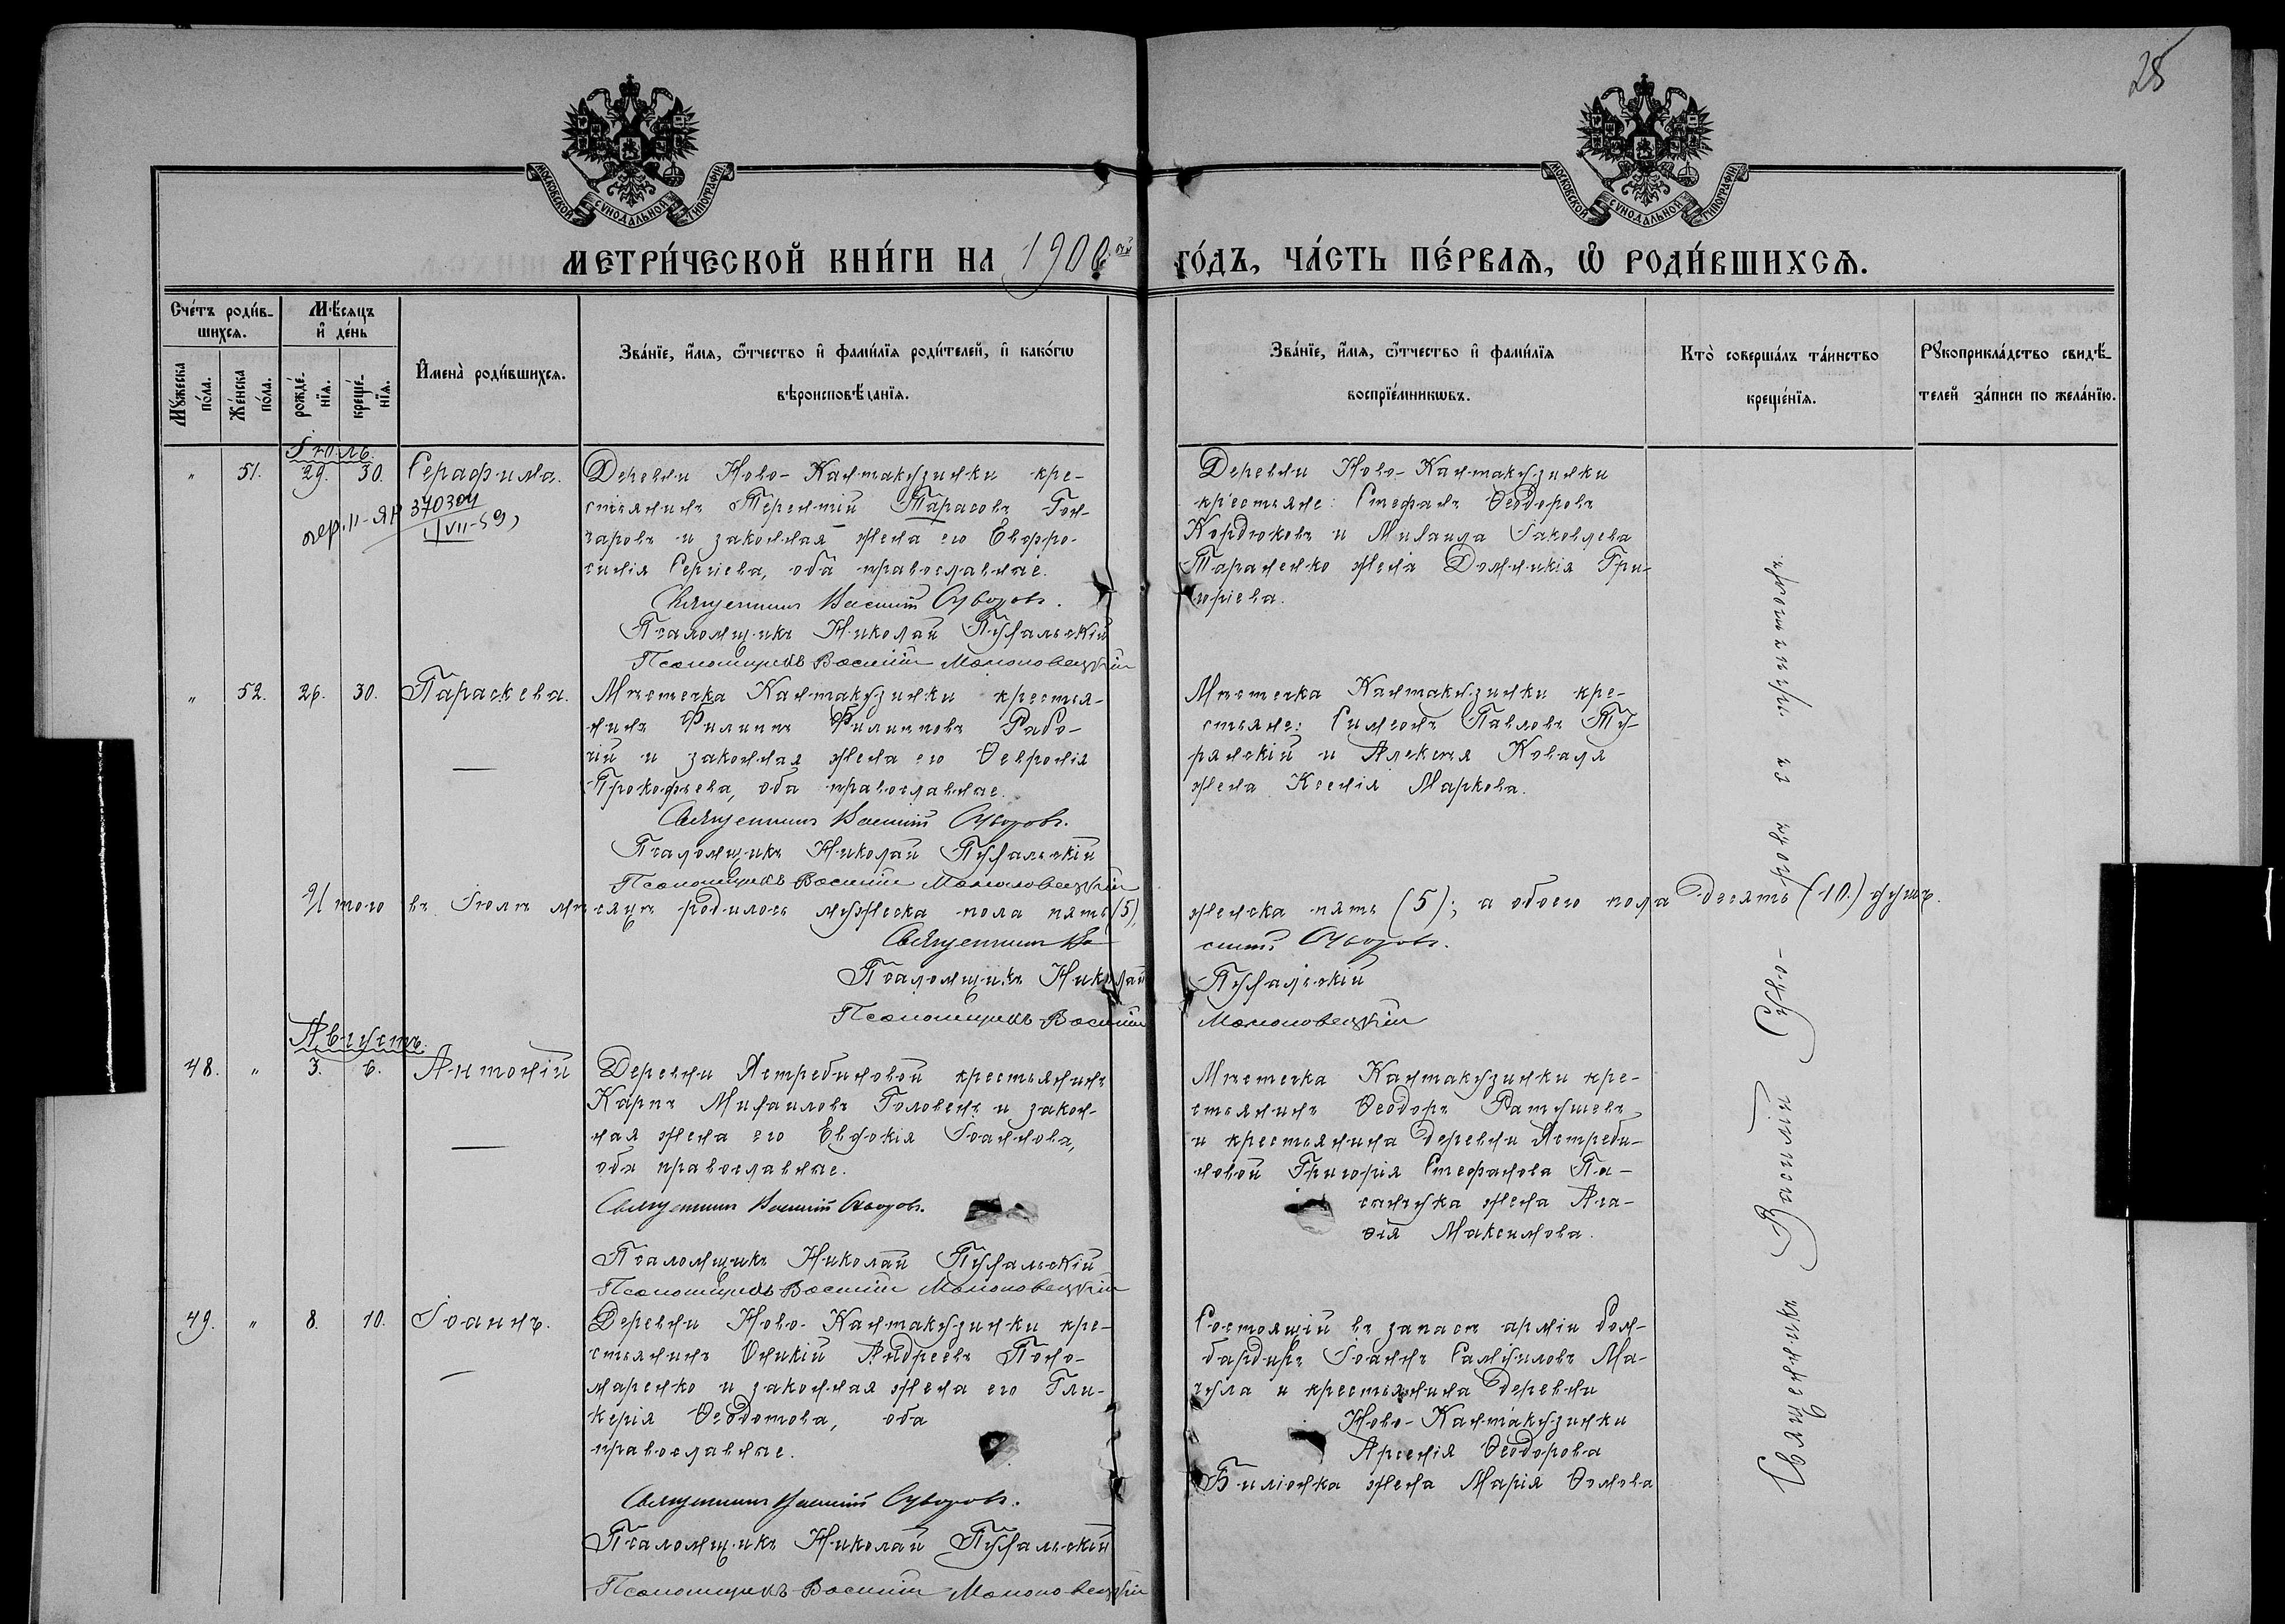 28
МОСКОВСКОЙ СѴНОДАЛЬНОЙ ТИПОГРАФІИ.
МОСКОВСКОЙ СѴНОДАЛЬНОЙ ТИПОГРАФІИ.
МЕТРИ́ЧЕСКОЙ КНИ́ГИ НА 1900ый ГО́ДЪ, ЧА́СТЬ ПЕ́РВАѦ, Ѡ҆ РОДИ́ВШИХСѦ.
Сче́тъ роди́в-
шихсѧ.
Мꙋ́жеска по́ла.
Же́нска по́ла.
Мѣ́сѧцъ
и҆ де́нь
рожде́-
нїѧ.
креще́-
нїѧ.
И҆мена̀ роди́вшихсѧ.
Зва́нїе, и҆́мѧ, ѻ҆́тчество и҆ фами́лїѧ роди́телей, и҆ како́гѡ
вѣроисповѣ́данїѧ.
Зва́нїе, и҆́мѧ, ѻ҆́тчество и҆ фами́лїѧ
воспрїе́мникѡвъ.
Кто̀ соверша́лъ та́инство
креще́нїѧ.
Рꙋкоприкла́дство свидѣ́-
телей за́писи по жела́нїю.
Іюль.
" 51. 29. 30. Серафима.
370304
Деревни Ново-Кантакузинки кре-
стьянинъ Терентій Тарасовъ Гон-
чаровъ и законная жена его Евфро-
синія Сергіева, оба православные.
Священникъ Василій Суворовъ.
Псаломщикъ Николай Пухальскій
Псаломщикъ Василій
Деревни Ново-Кантакузинки
крестьяне: Стефанъ Ѳеодоровъ
Кордюковъ и Михаила Іаковлева
Тараненко жена Домникія Гри-
горіева.
" 52. 26. 30. Параскева.
Мѣстечка Кантакузинки крестья-
нинъ Филиппъ Филипповъ Рабо-
чій и законная жена его Ѳевронія
Прокофьева, оба православные.
Священникъ Василій Суворовъ.
Псаломщикъ Николай Пухальскій
Псаломщикъ Василій
Мѣстечка Кантакузинки кре-
стьяне: Симеонъ Павловъ Ту-
рянскій и Алексѣя Коваля
жена Ксенія Маркова.
Итого въ Іюлѣ мѣсяцѣ родилось мужеска пола пять (5), женска пять (5); а обоего пола десять (10.) душъ.
Священникъ Василій Суворовъ.
Псаломщикъ Николай Пухальскій
Псаломщикъ Василій
Августъ.
48. " 3. 6. Антоній
Деревни Ястребиновой крестьянинъ
Карпъ Михаиловъ Головенъ и закон-
ная жена его Евдокія Іоаннова,
оба православные.
Священникъ Василій Суворовъ.
Псаломщикъ Николай Пухальскій
Псаломщикъ Василій
Мѣстечка Кантакузинки кре-
стьянинъ Ѳеодоръ Ратушевъ
и крестьянина деревни Ястреби-
новой Григорія Стефанова Па-
жена Ага-
ѳія Максимова.
49. " 8. 10. Іоаннъ.
Деревни Ново-Кантакузинки кре-
стьянинъ Андреевъ Поно-
маренко и законная жена его Гли-
керія Ѳеодотова, оба
православные.
Священникъ Василій Суворовъ.
Псаломщикъ Николай Пухальскій
Псаломщикъ Василій
Состоящій въ запасѣ арміи бом-
бардиръ Іоаннъ Самуиловъ Ма-
чула и крестьянина деревни
Ново-Кантакузинки
Арсенія Ѳеодорова
жена Марія Ѳомова
Священникъ Василій Суво-
ровъ съ причтомъ.